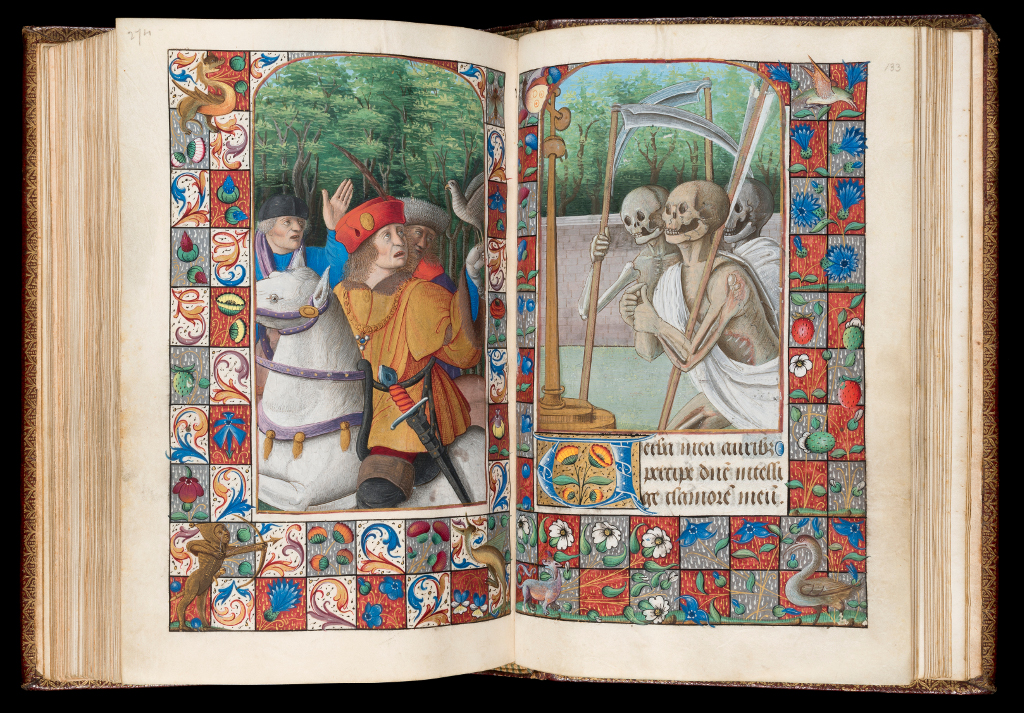 274
133
Uerba mea aurib⁊
percipe dñe intelli
ge clamorē meū.